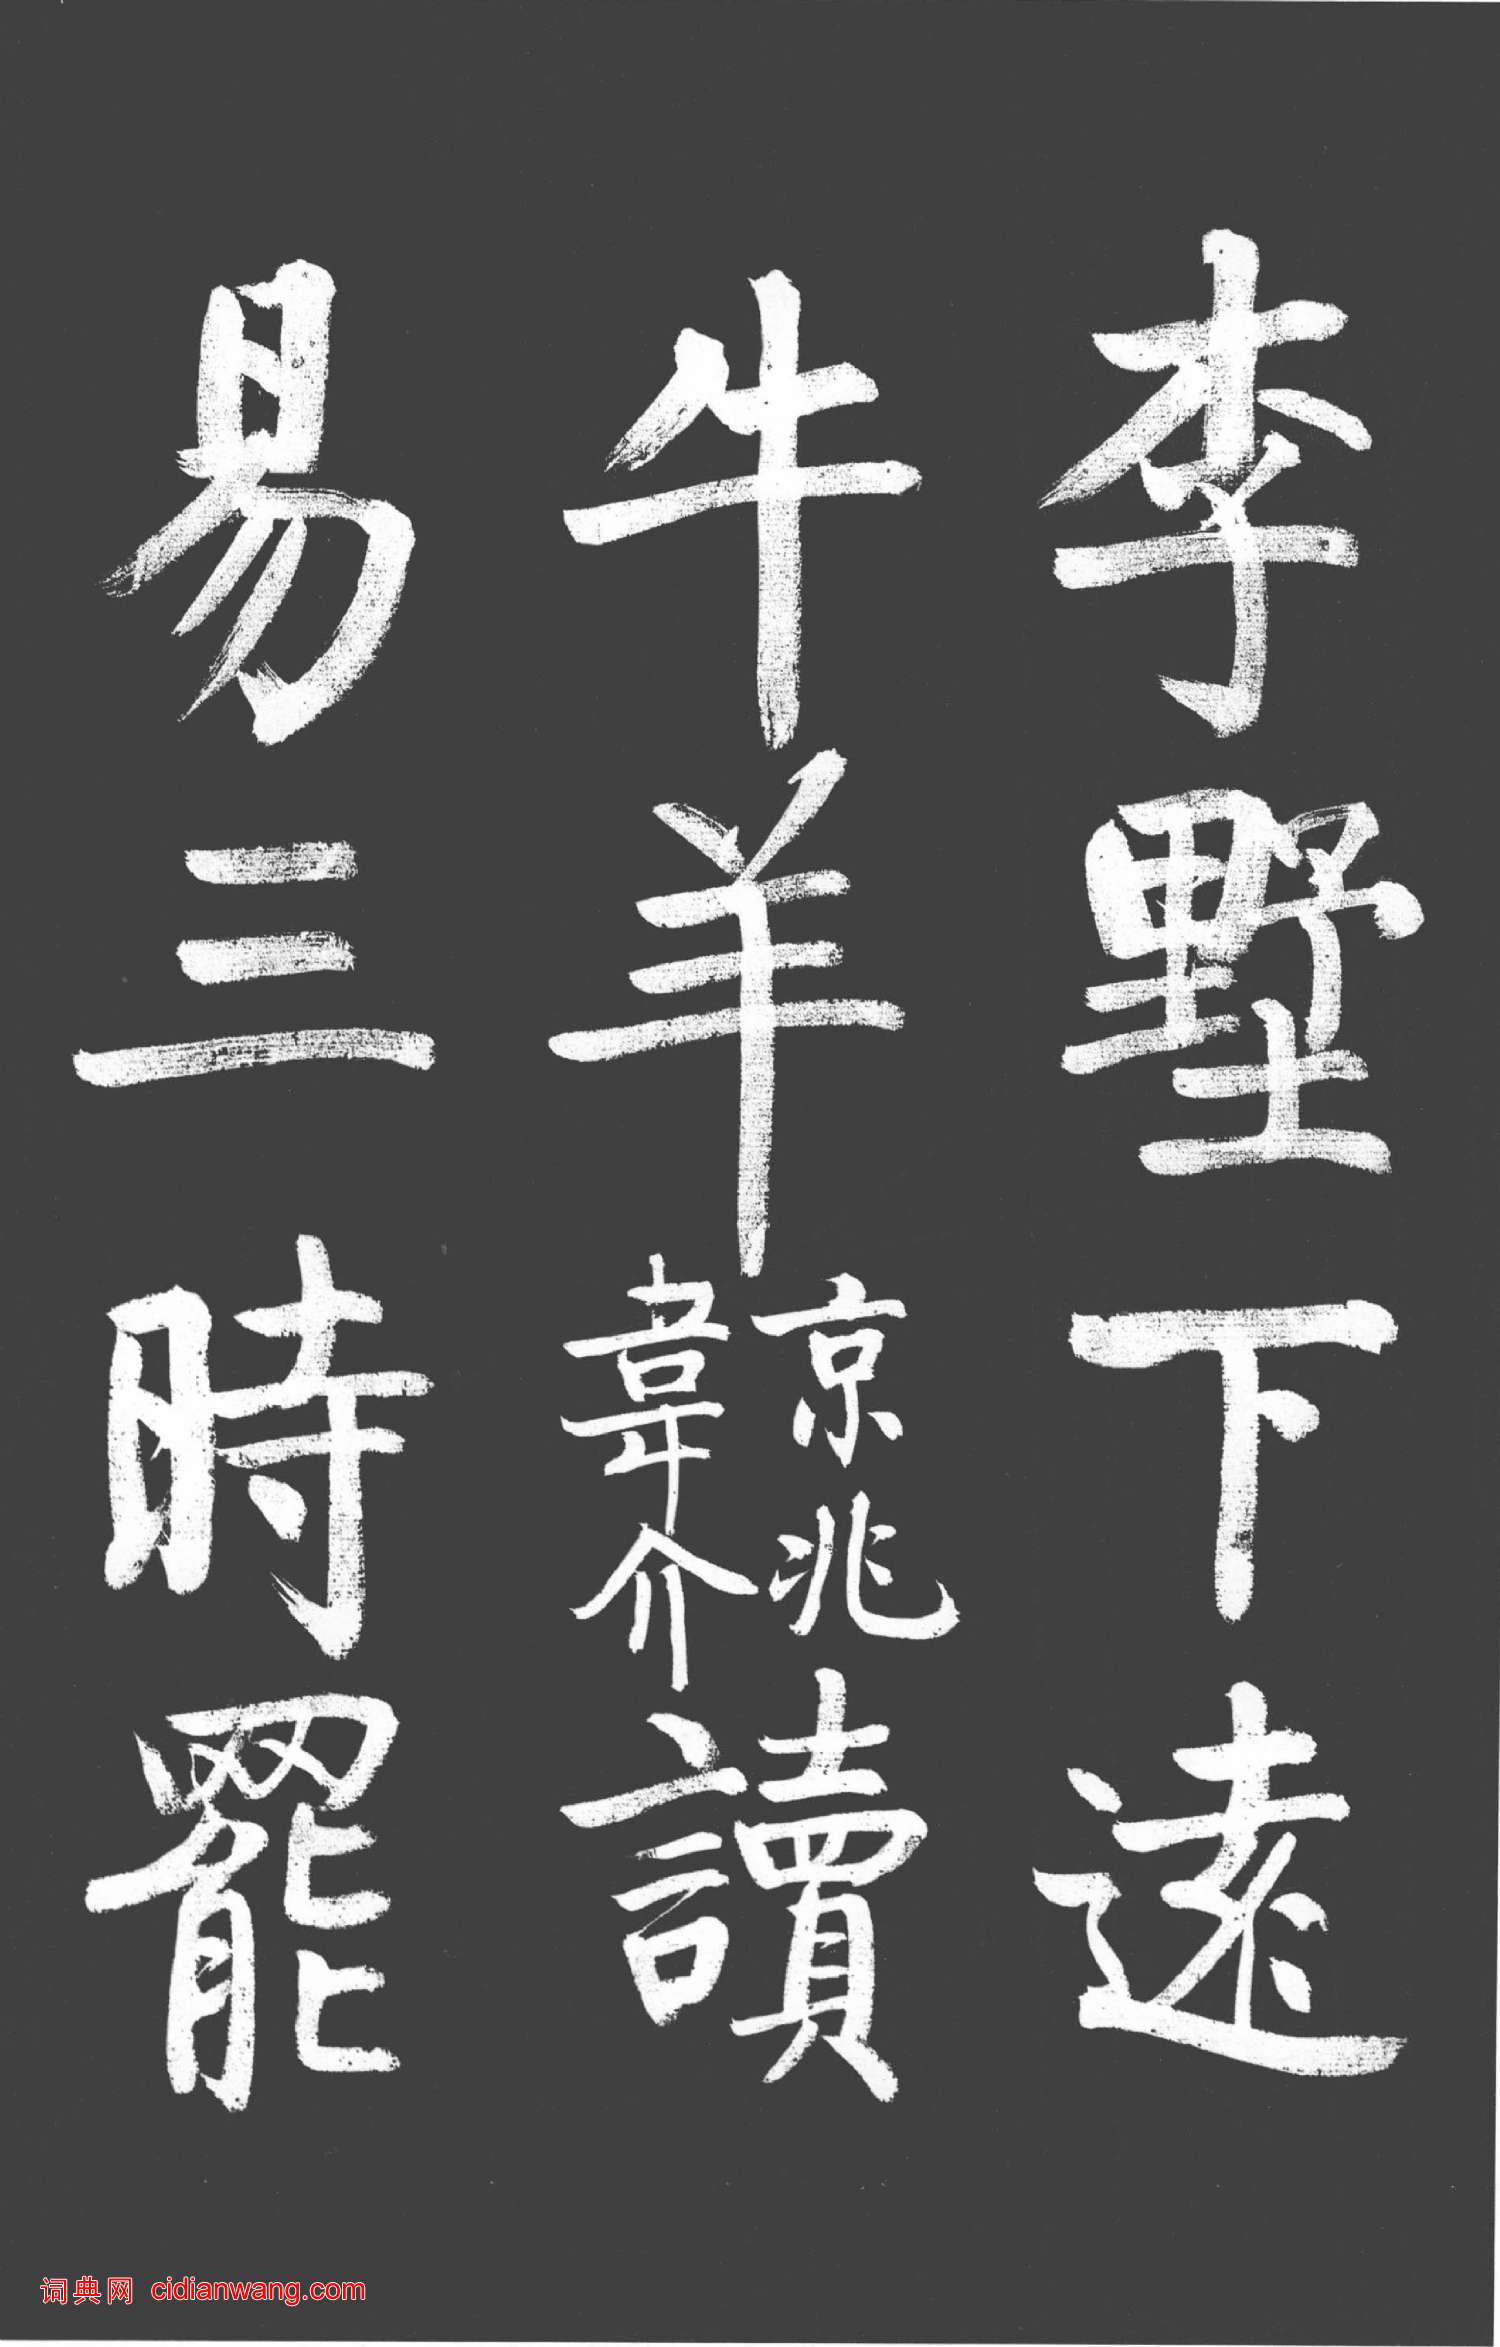 李墅下遠
牛羊
京兆
韋介
讀
易三時罷
词典网 cidianwang.com